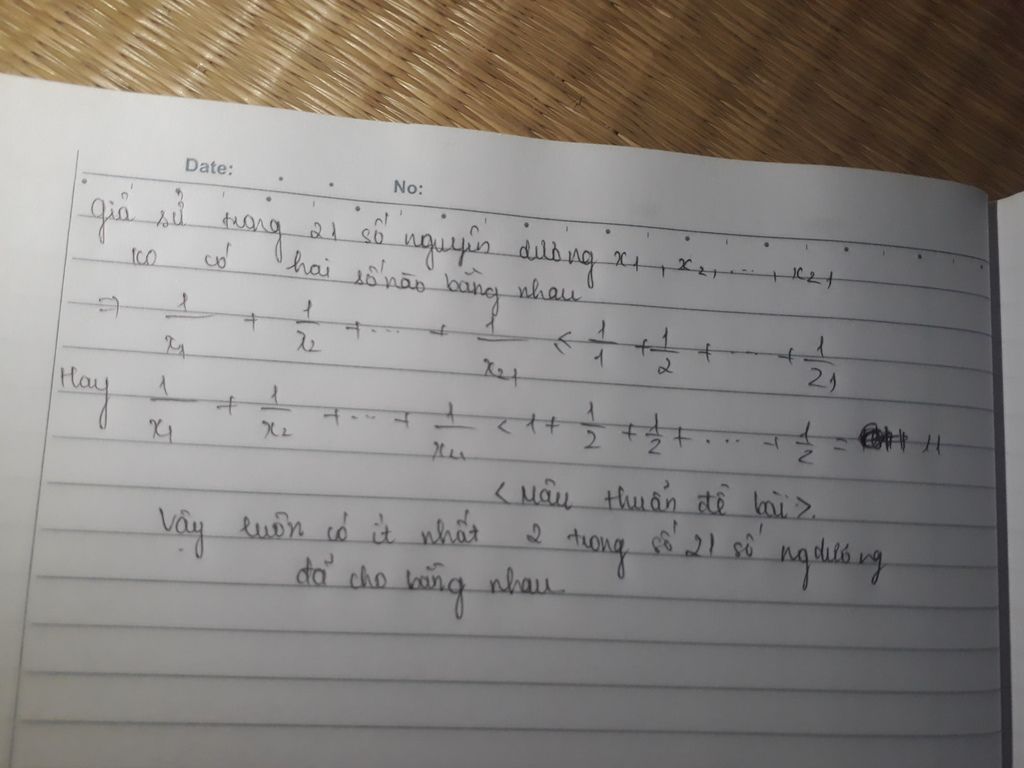 Date: No:
Giả sử trong 21 số nguyên dương x₁, x₂, ..., x₂₁
ko có hai số nào bằng nhau
=> 1/x₁ + 1/x₂ + ... + 1/x₂₁ < 1/1 + 1/2 + ... + 1/21
Hay 1/x₁ + 1/x₂ + ... + 1/x₂₁ < 1 + 1/2 + 1/2 + ... + 1/2 = 11
<Mâu thuẩn đề bài>.
Vậy luôn có ít nhất 2 trong số 21 số ng dương
đã cho bằng nhau